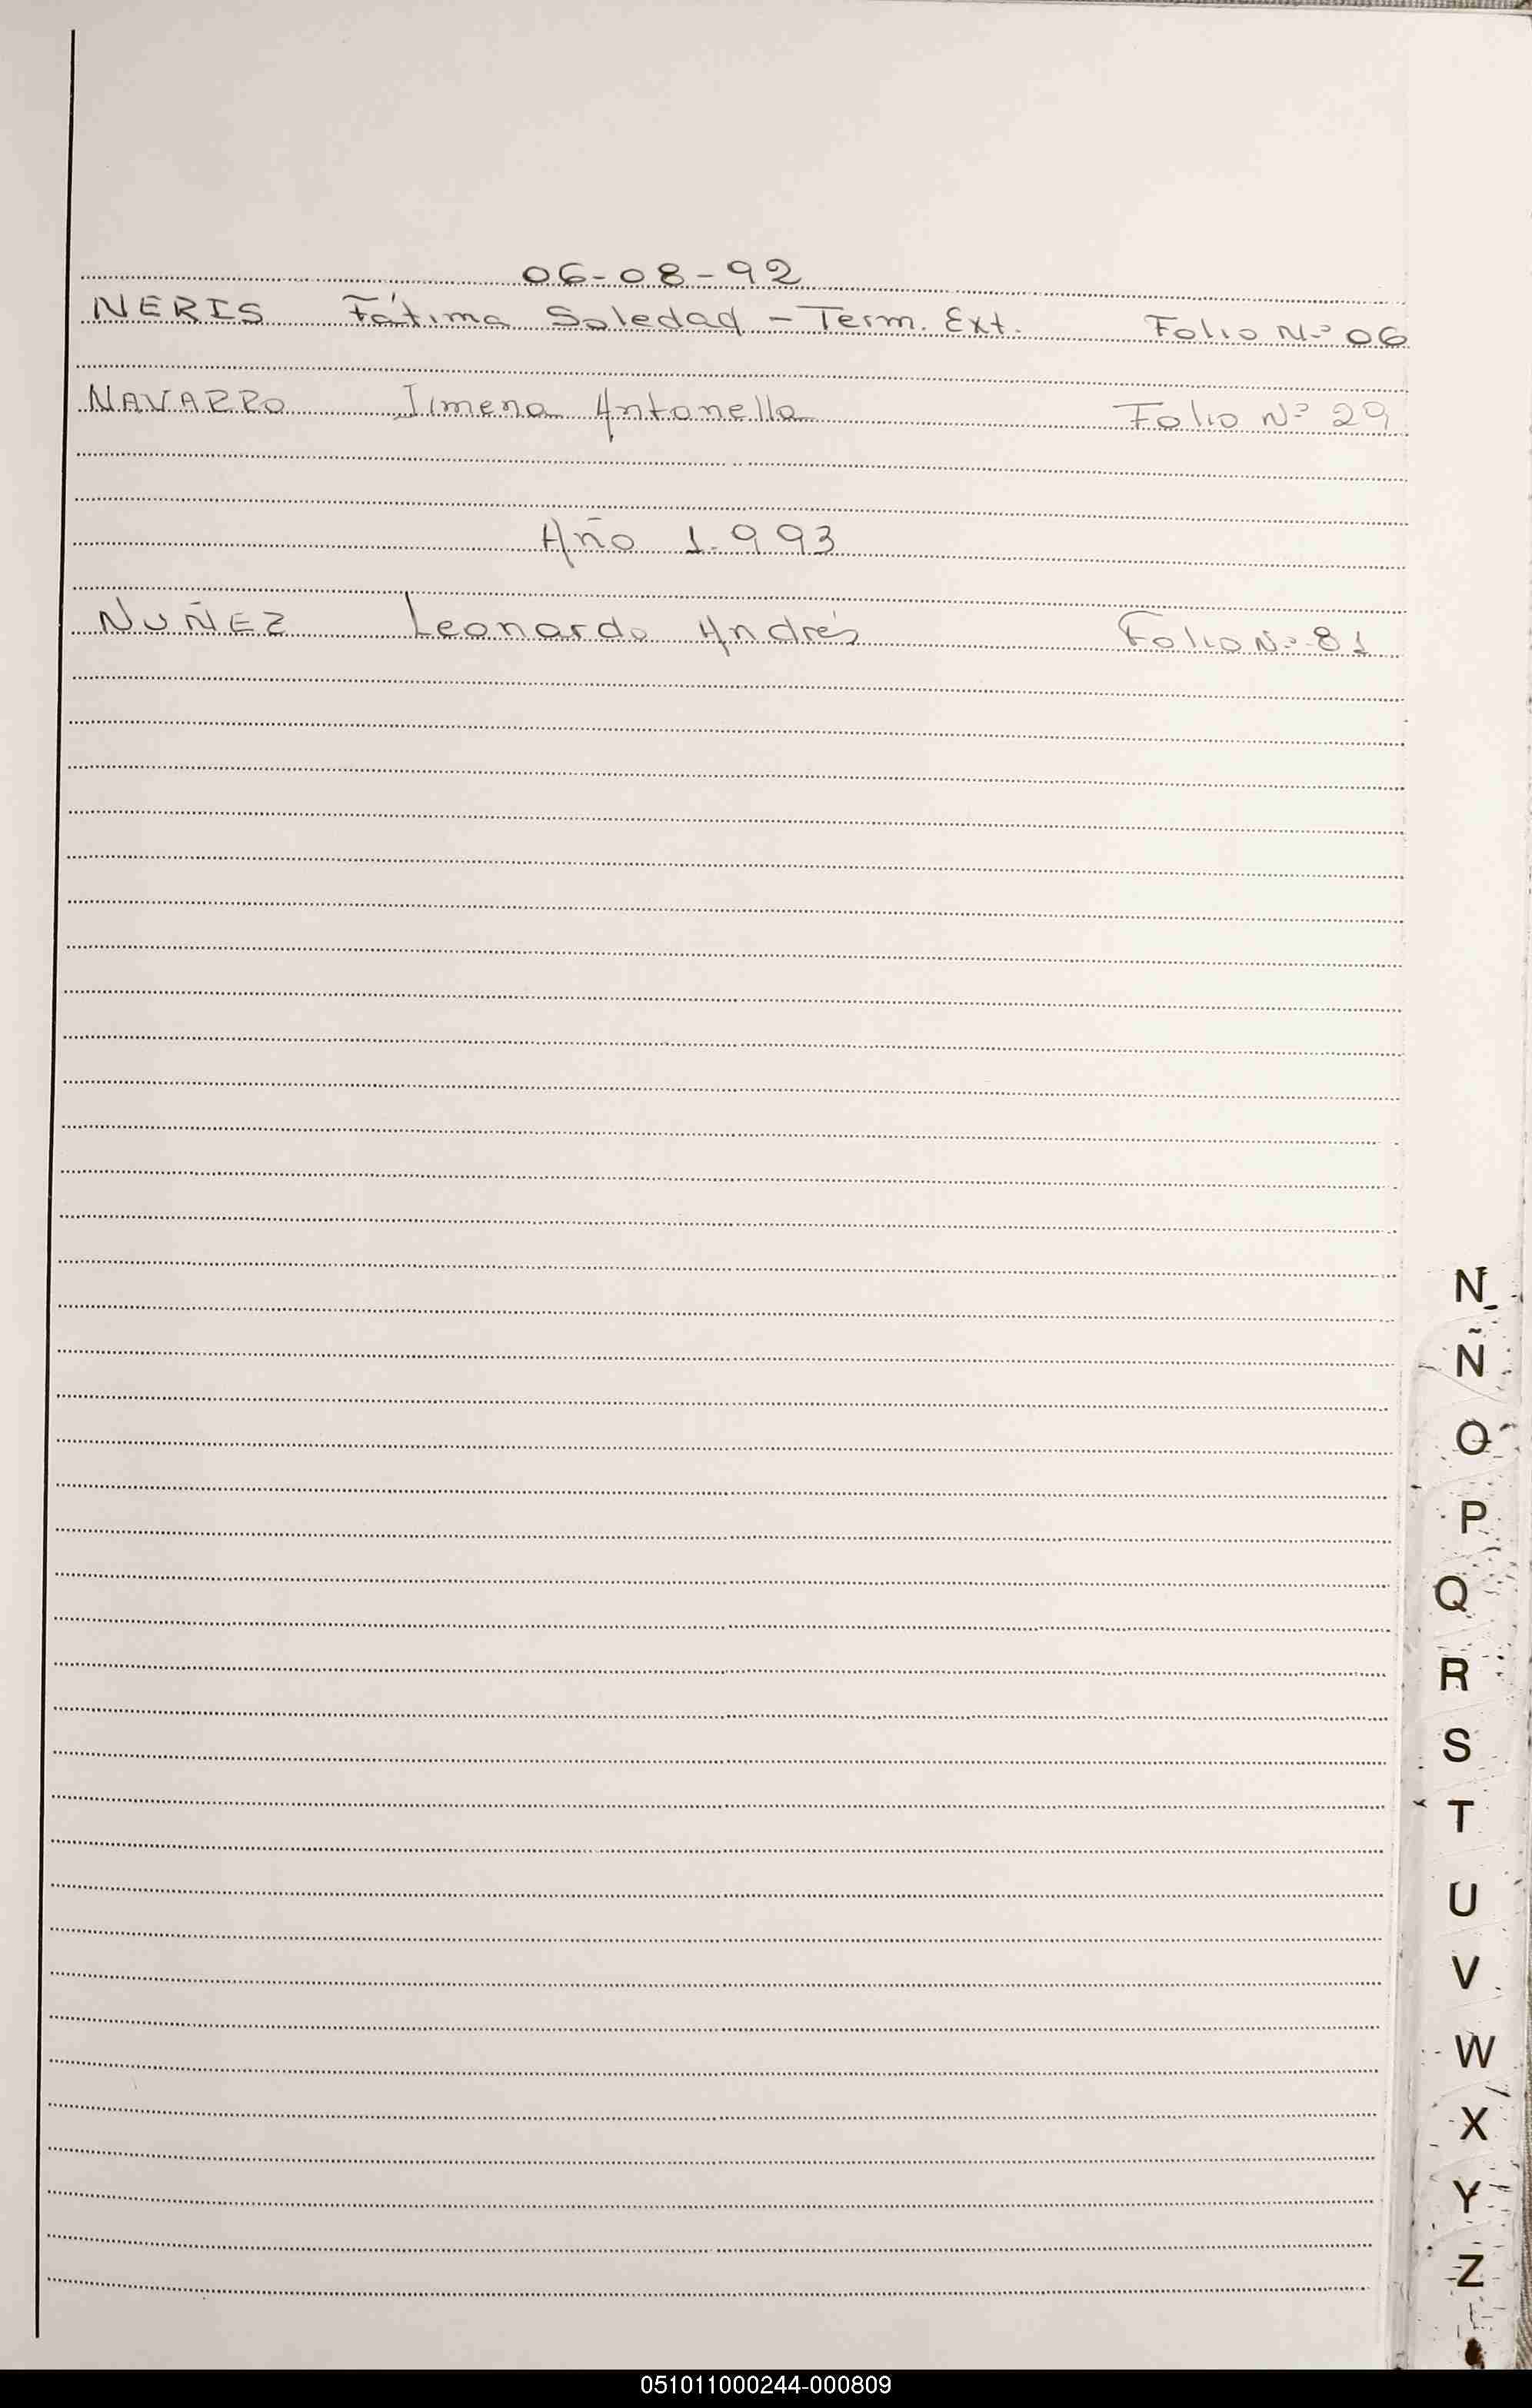 06-08-92
NERIS Fátima Soledad - Term. Ext. Folio Nº 06
NAVARRO Jimena Antonella Folio Nº 29
Año 1.993
NUÑEZ Leonardo Andrés Folio Nº 81
N
Ñ
O
P
Q
R
S
T
U
V
W
X
Y
Z
051011000244-000809